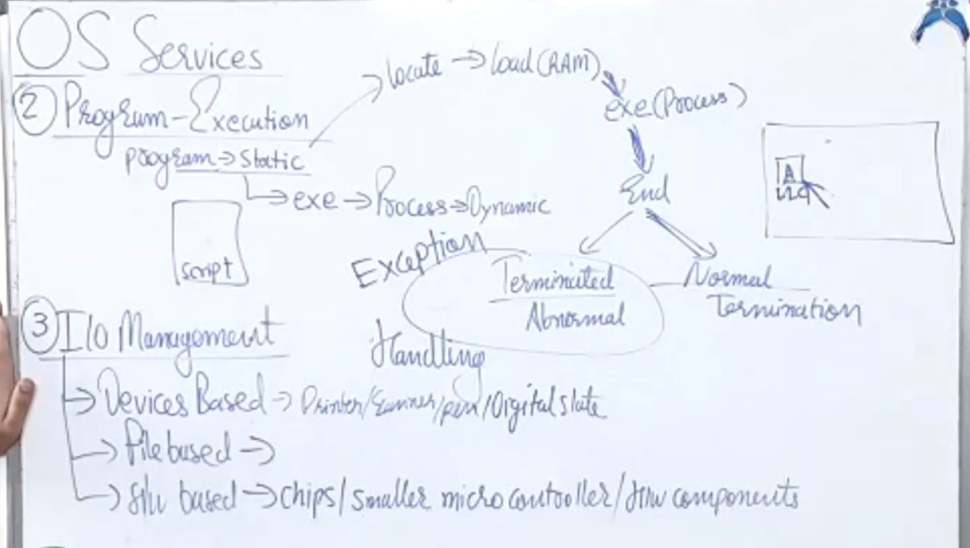 OS Services
② Program-Execution
program → static
↳ exe → Process → Dynamic
script
locate → load (RAM)
exe (Process)
End
Terminated
Abnormal
Normal
Termination
Exception
Handling
A
③ I/o Management
→ Devices Based → Printer/Scanner/pen/Digital slate
→ File based →
→ H/w based → chips/smaller microcontroller/H/w components